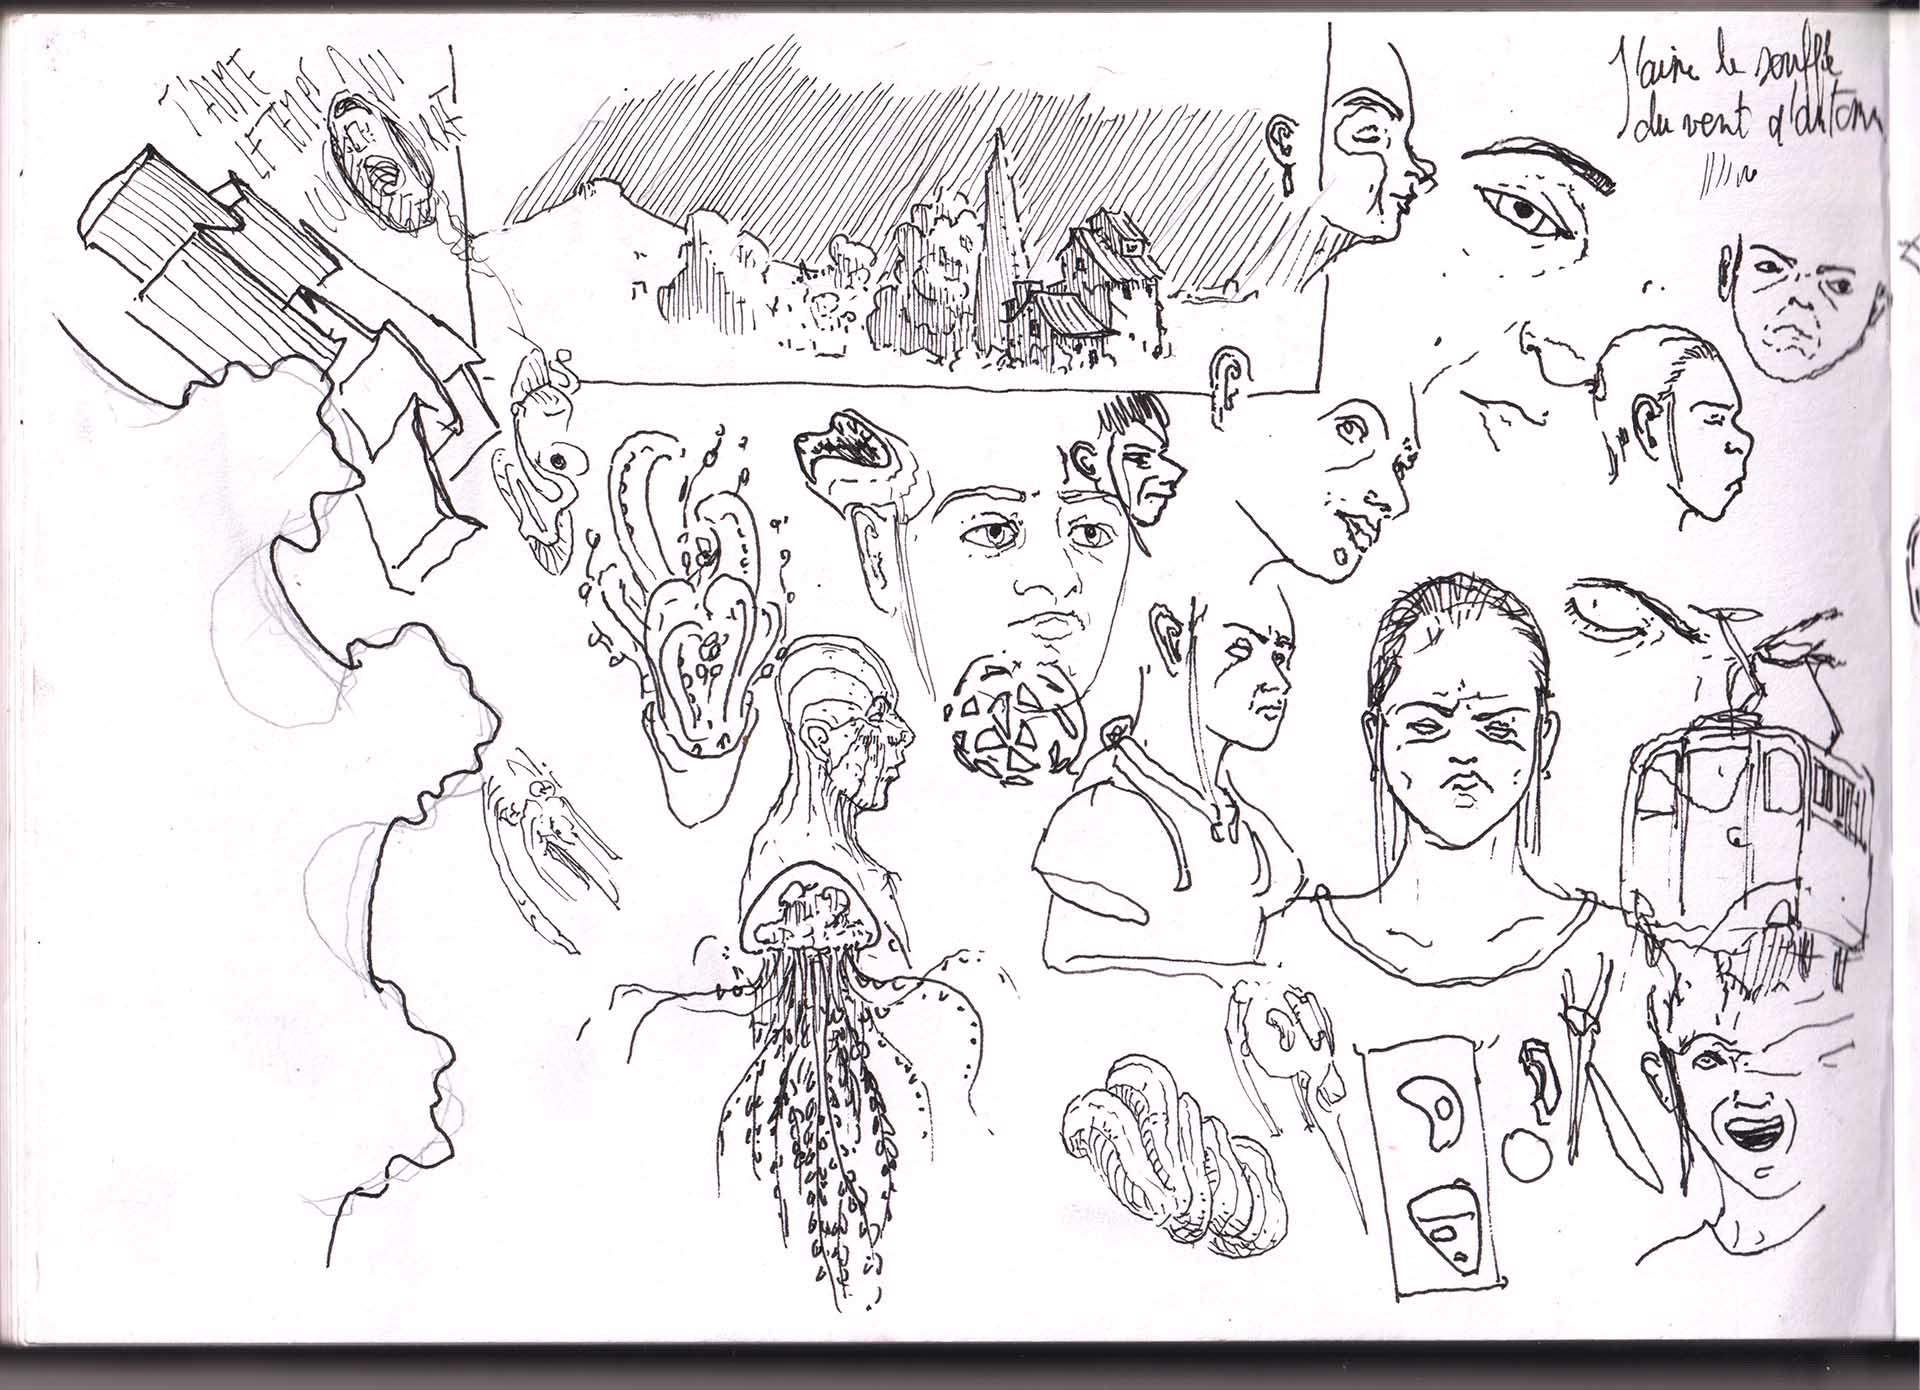 J'AIME
LE TEMPS QUI
J'aime le souffle
du vent d'autom